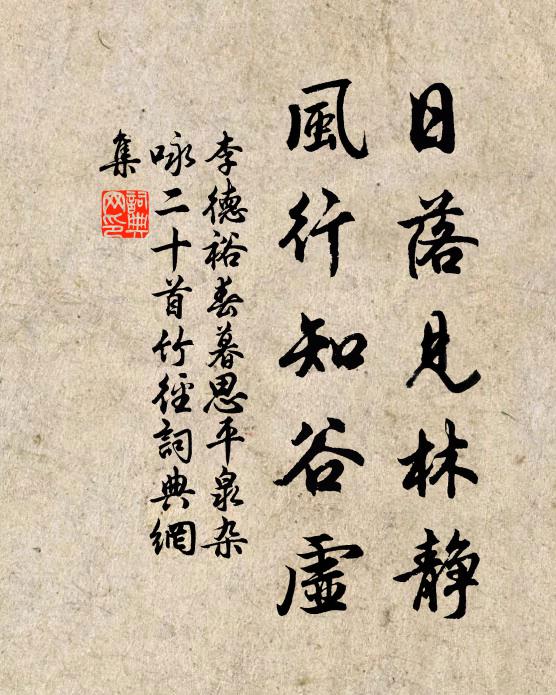 日落見林静
風行知谷虛
李德裕春暮思平泉杂
咏二十首竹徑詞典網
集
詞典
网印